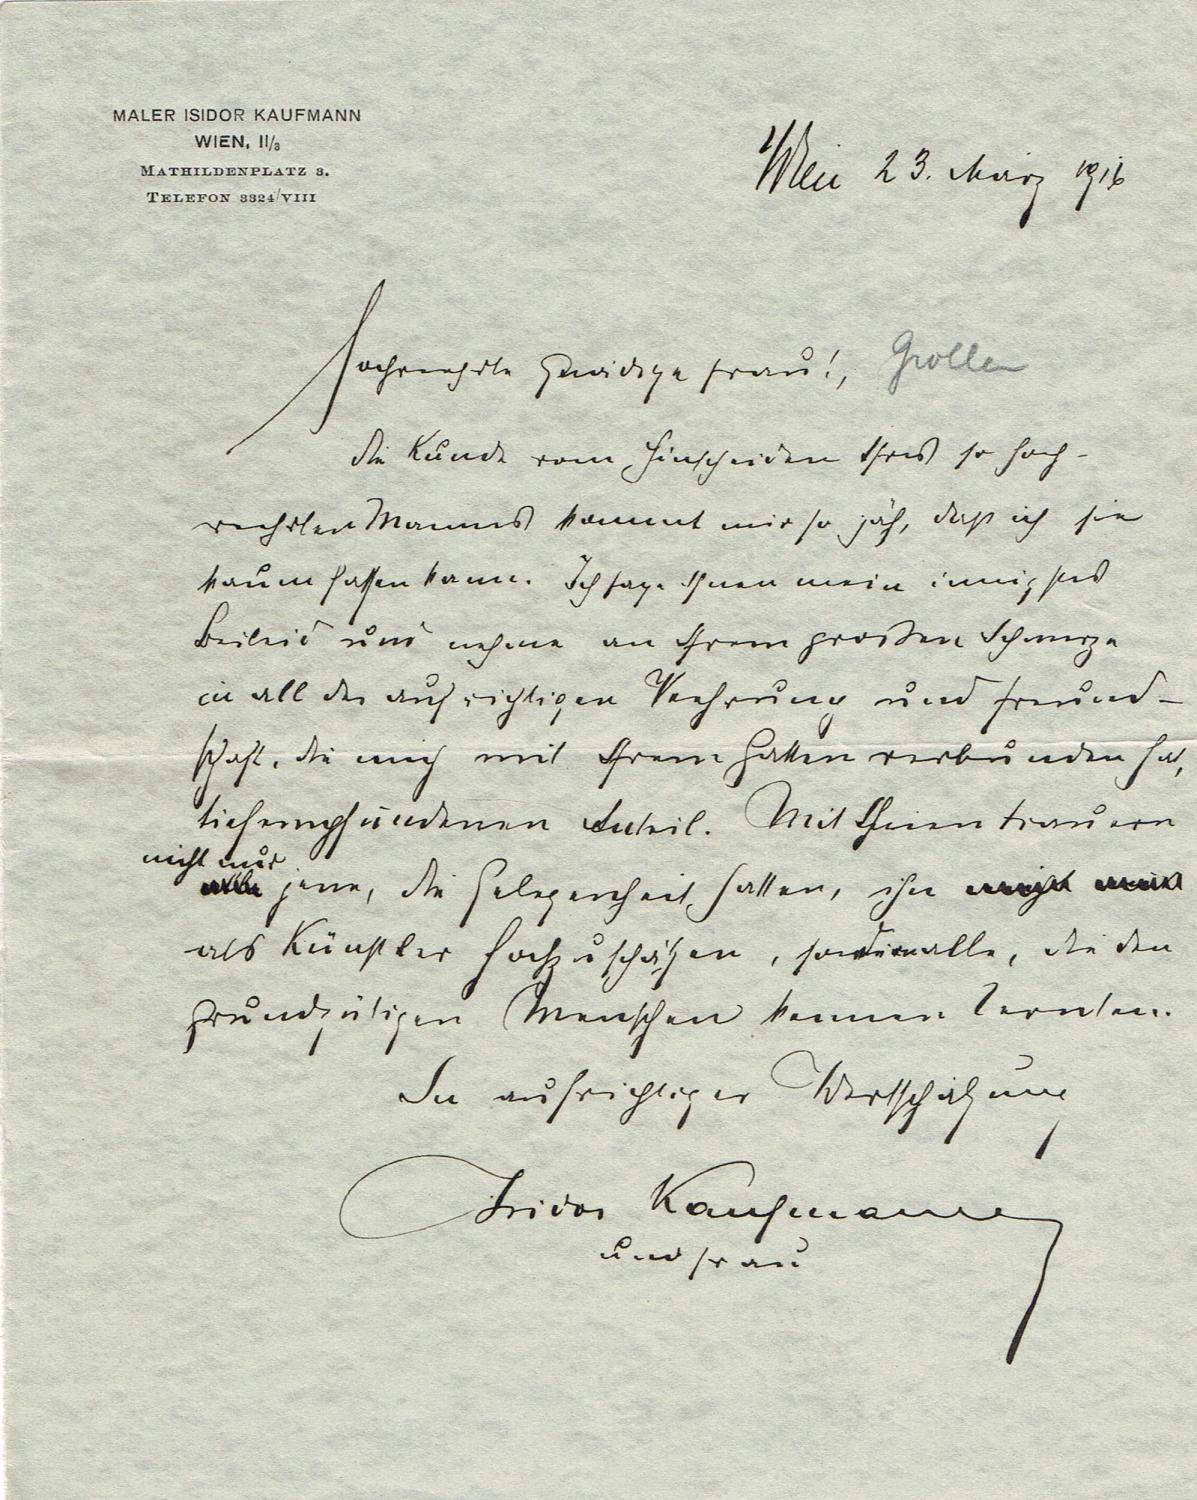 MALER ISIDOR KAUFMANN
WIEN, II/3
MATHILDENPLATZ 3.
TELEFON 3324/VIII
Wien 23. März 1916
Hochverehrte gnädige Frau!,
die Kunde vom Hinscheiden Ihres so hoch-
verehrten Mannes kommt mir so jäh, daß ich sie
kaum fassen kann. Ich sage Ihnen mein innigstes
Beileid und nehme an Ihrem großen Schmerze
in all der aufrichtigen Verehrung und Freund-
schaft, die mich mit Ihrem Gatten verbunden hat,
tiefempfundenen Anteil. Mit Ihnen trauern
nicht nur
jene, die Gelegenheit hatten, ihn
als Künstler hochzuschätzen, sondern alle, die den
grundgütigen Menschen kennen lernten.
In aufrichtiger Wertschätzung
Isidor Kaufmann
und Frau